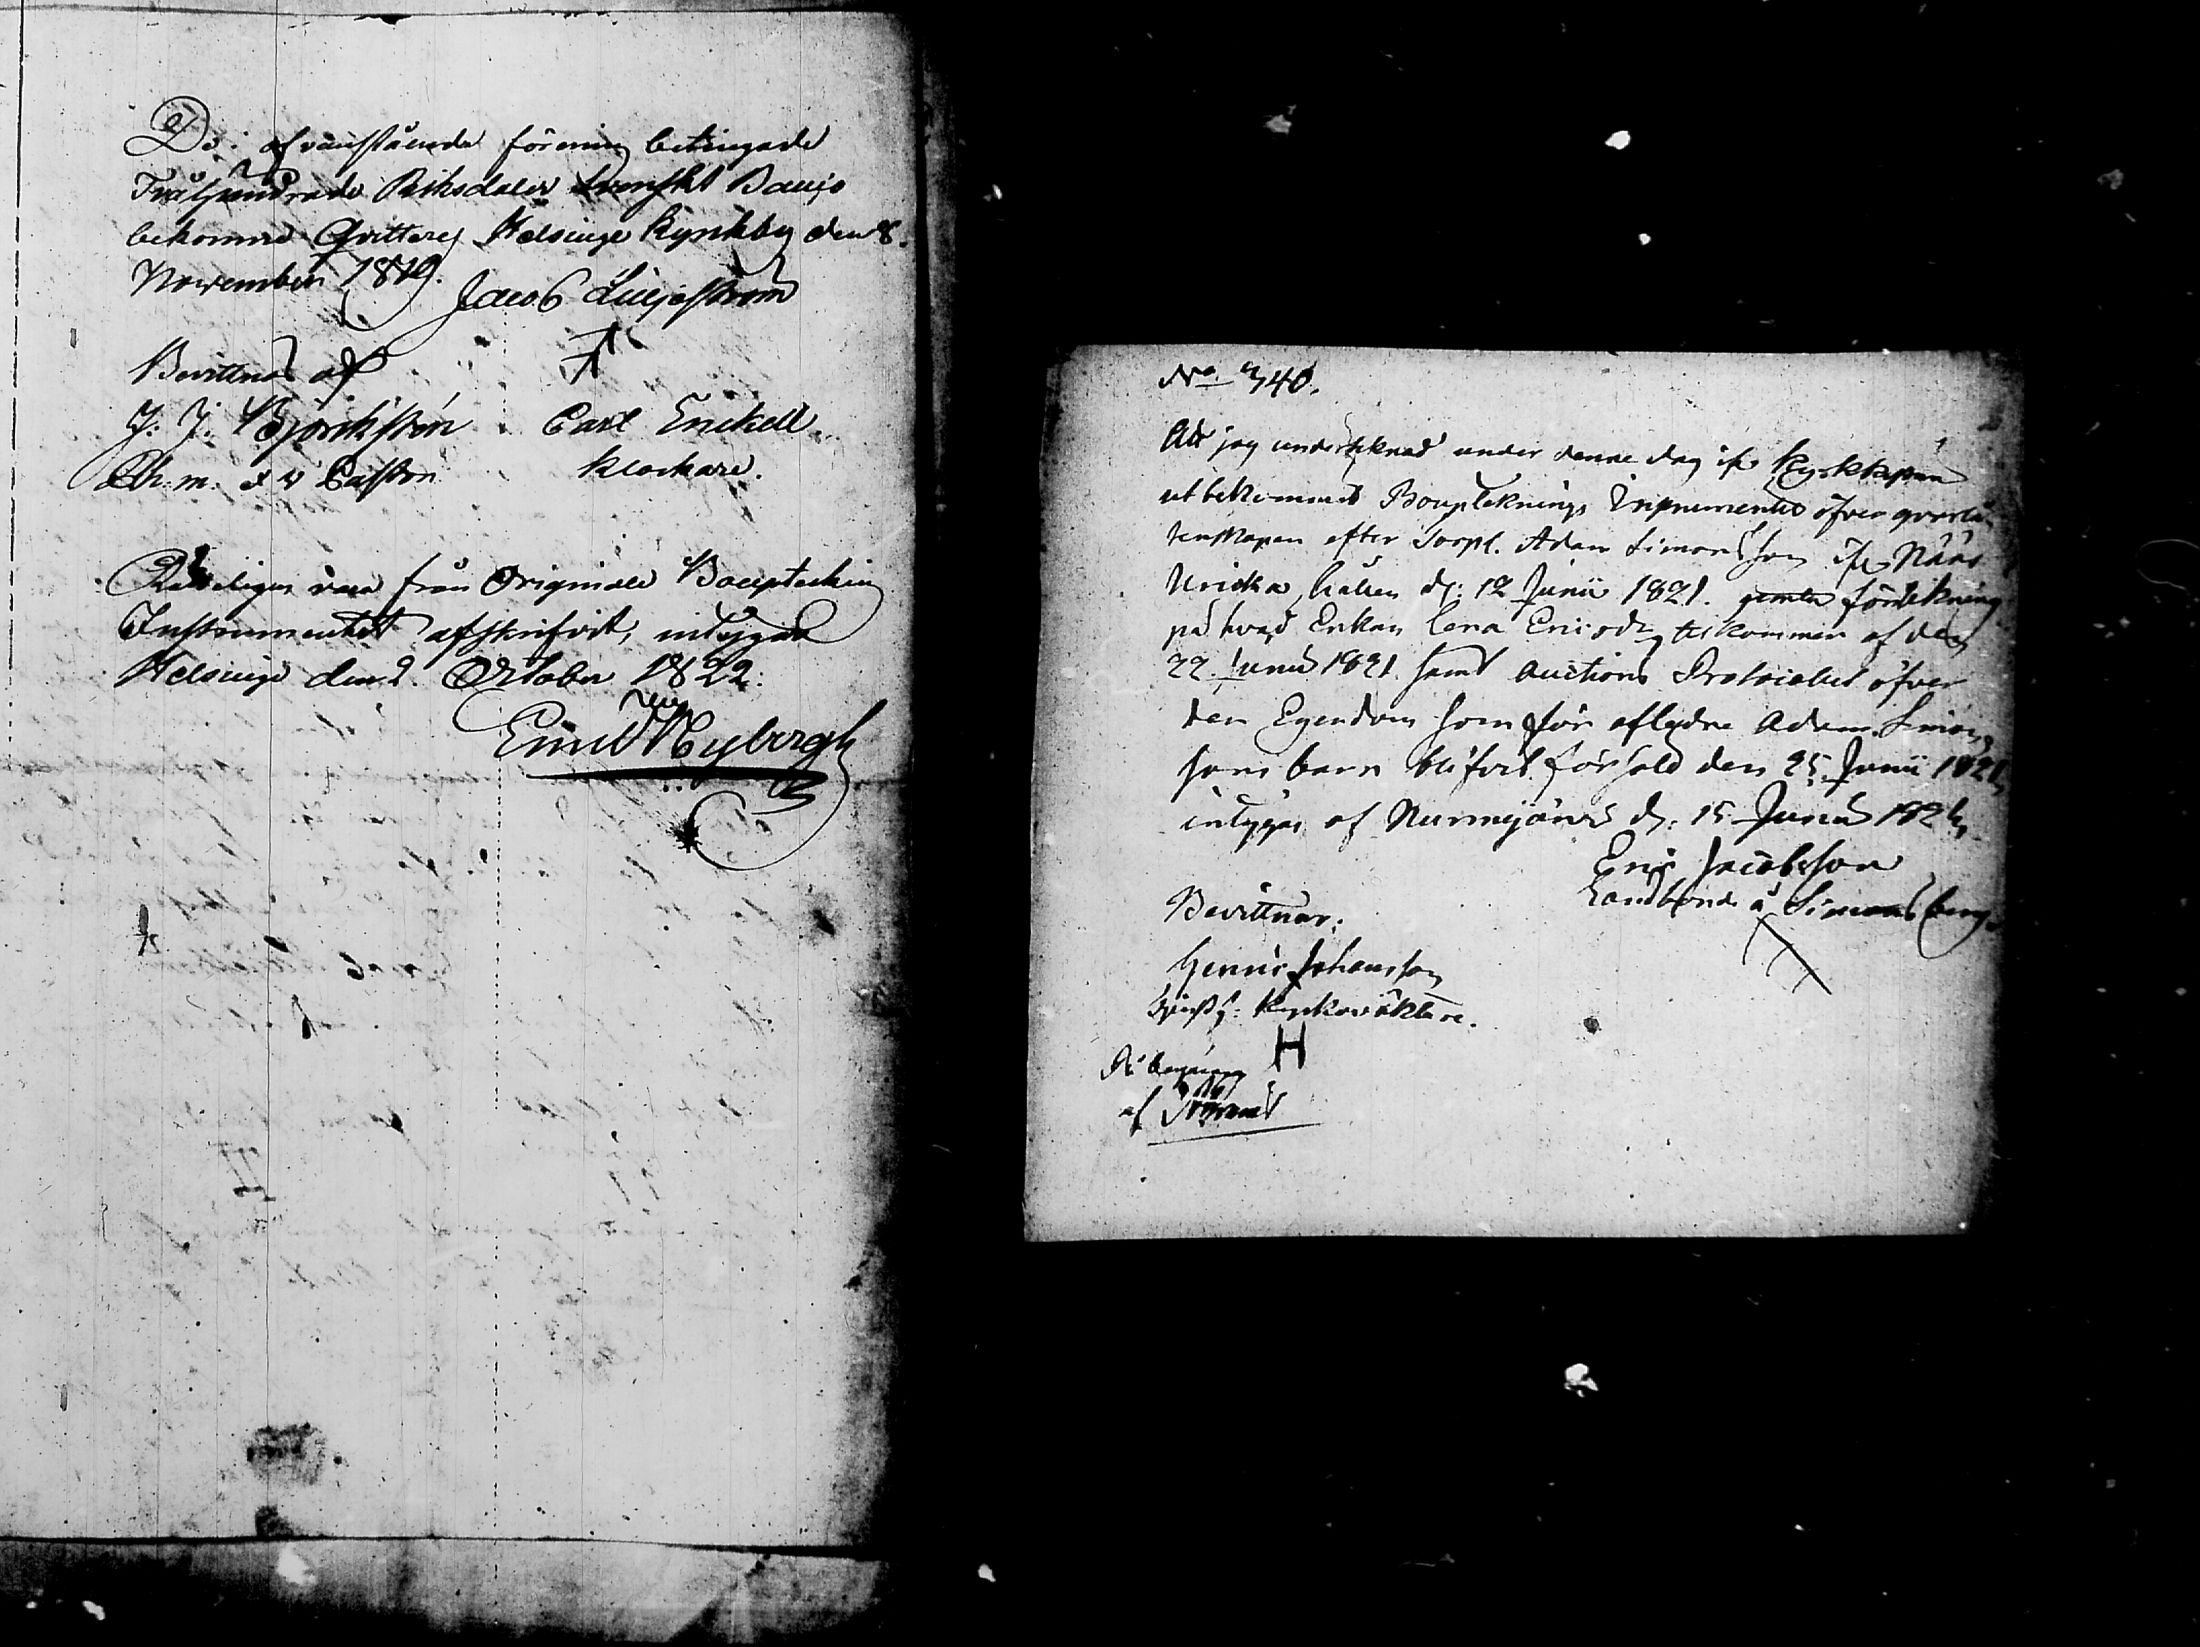 De i ofvanstående förening betingade
Tvåhundrade Riksdaler Svenskt Banjo
bekommit Qvitteras Helsinge Kyrkby den 8.
November 1819.
Jacob Liljeström
Bevittnas af
J. J. Björkstén
Carl Enckell
Klockare.
Rätteligen vara från Originale Bouptecknings
Instrumentet afskrifvit, intygar
Helsinge den 2. October 1822.
Emil Nybergh
No 340.
Att jag underteknad under denne dag ifr. Kyrkkapan
utbekommit Boupteknings Instrumentet öfver qvarlå-
tenskapen efter Torpl. Adam Simonsson ifr. Nääs
hållen d: 12 Junii 1821. jemte förtekning
på hvad Enkan Lena Ericsdr tilkommer af den
22. Junii 1821 samt Auctions Protocollet öfver
den Egendom som för aflidne Adam Simons-
sons barn blifvit försåld den 25 Junii 1821,
intygas af Nurmijärvi d: 15 Junii 182
Eric Jacobsson
Landbonde å Simonsberg
Bevittnar:
Henric Johansson
Kyrkoväktare.
H
På begäran
af